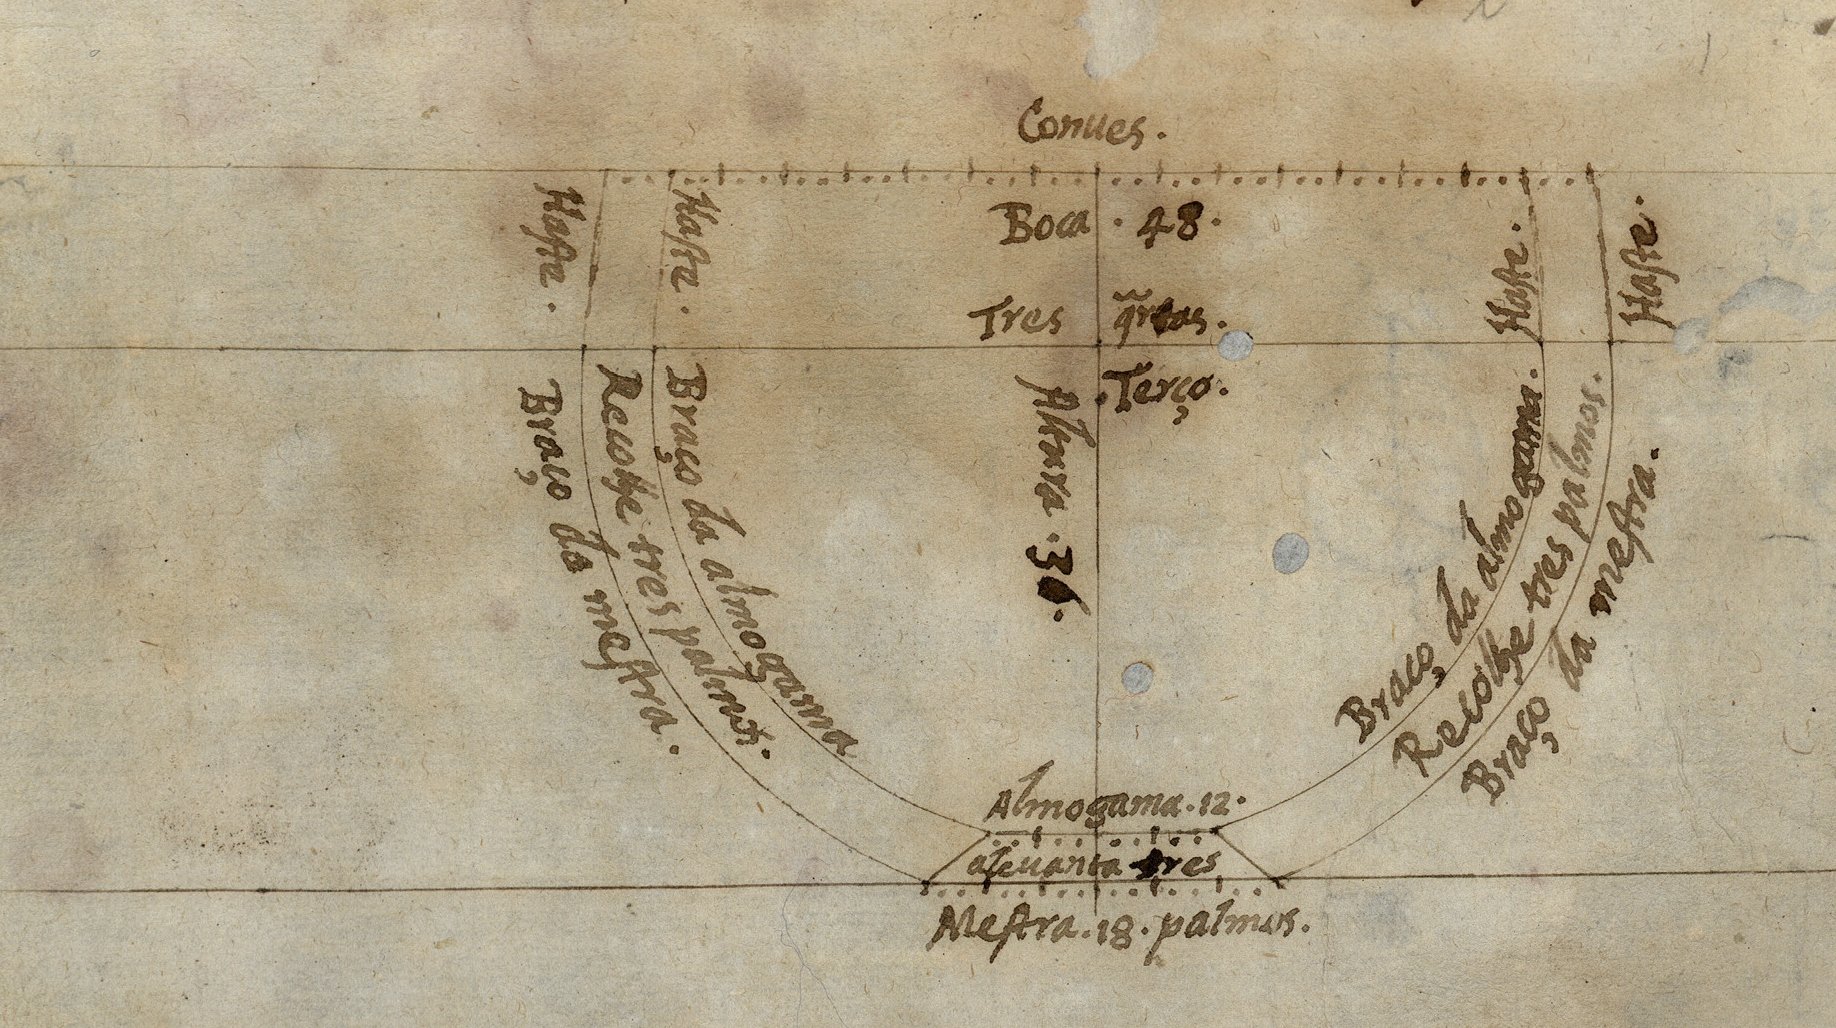 Conues.
Boca . 48.
Tres q̃rtas.
Terço.
Altura . 36.
Haste.
Haste.
Haste.
Haste.
Braço da mestra.
Recolhe tres palmos.
Braço da almogama
Braço da almogama.
Recolhe tres palmos.
Braço da mestra.
Almogama . 12.
aleuanta tres
Mestra . 18. palmos.